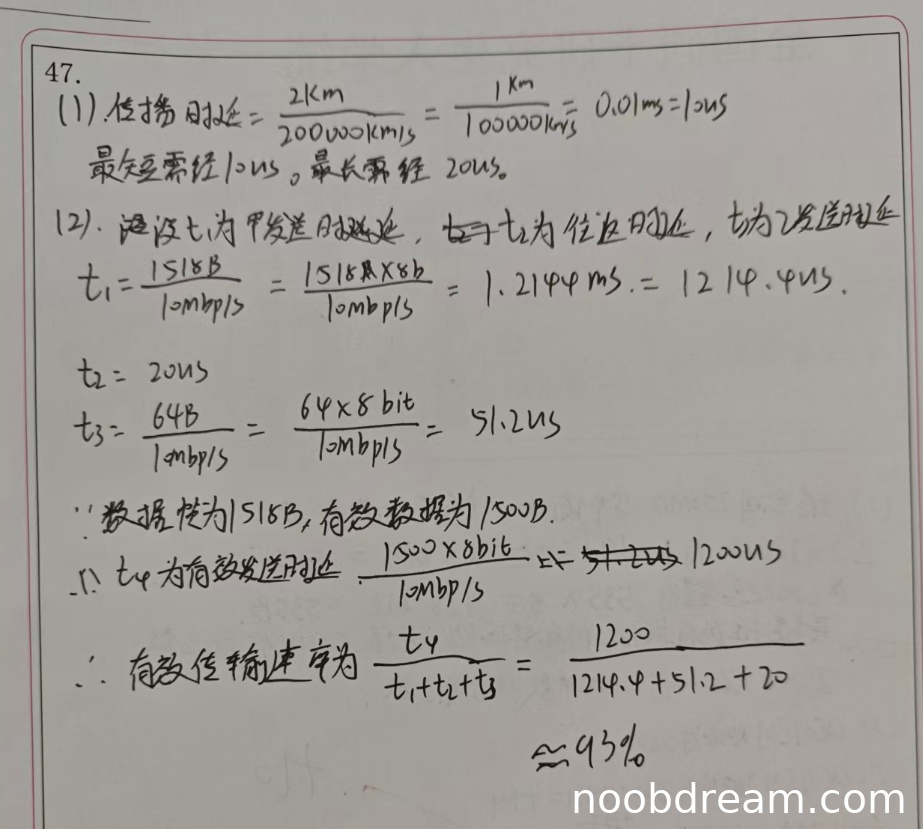 47.
(1). 传播时延 = 2Km / 200000Km/s = 1Km / 100000Km/s = 0.01ms = 10us
最短需经10us。最长需经 20us。
(2). 设t₁为甲发送时延, t₂为往返时延, t₃为乙发送时延
t₁ = 1518B / 10mbp/s = 1518×8b / 10mbp/s = 1.2144ms. = 1214.4us.
t₂ = 20us
t₃ = 64B / 10mbp/s = 64×8bit / 10mbp/s = 51.2us
∵ 数据帧为1518B, 有效数据为1500B.
∴ t₄为有效发送时延 1500×8bit / 10Mbp/s = 1200us
∴ 有效传输速率为 t₄ / t₁+t₂+t₃ = 1200 / 1214.4+51.2+20
≈93%
noobdream.com